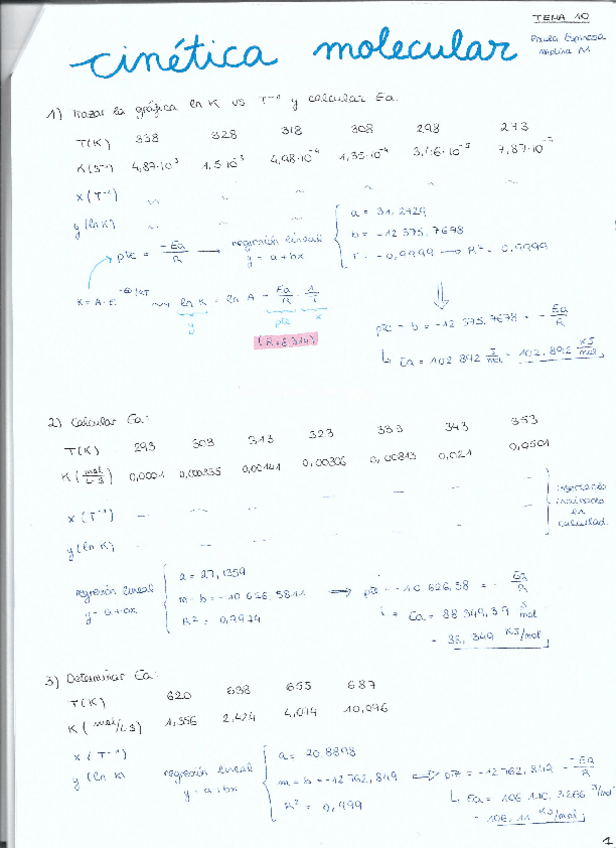 TEMA 10
Paula Espinosa
cinética molecular
1) Trazar la gráfica ln K vs T⁻¹ y calcular Ea.
T(K) 338 328 318 308 298 273
K(s⁻¹) 4,87·10⁻³ 1,5·10⁻³ 4,98·10⁻⁴ 1,35·10⁻⁴ 3,46·10⁻⁵ 7,87·10⁻⁷
x(T⁻¹)
y(ln K)
pte = -Ea/R → regresión lineal y = a+bx
a = 31,2429
b = -12 375,7678
r = -0,9999 → R² = 0,9999
K = A·e^(-Ea/RT) → ln K = ln A - Ea/R · 1/T
y pte x
(R=8,314)
pte = b = -12 375,7678 = -Ea/R
↳ Ea = 102 892 J/mol = 102,892 KJ/mol
2) Calcular Ea:
T(K) 293 303 313 323 333 343 353
K(mol/L·S) 0,0001 0,000335 0,00141 0,00306 0,00813 0,021 0,0501
x(T⁻¹)
y(ln K)
insertando
en
regresión lineal y = a+bx
a = 27,1359
m = b = -10 626,5811
R² = 0,9974
→ pte = -10 626,58 = -Ea/R
Ea = 88 349,39 J/mol
= 88,349 KJ/mol
3) Determinar Ea:
T(K) 620 638 655 687
K(mol/L·S) 1,356 2,424 4,044 10,096
x(T⁻¹)
y(ln K) regresión lineal y = a+bx
a = 20,8898
m = b = -12 762,849 → pte = -12 762,842 = -Ea/R
R² = 0,999
= 106,11 KJ/mol
1